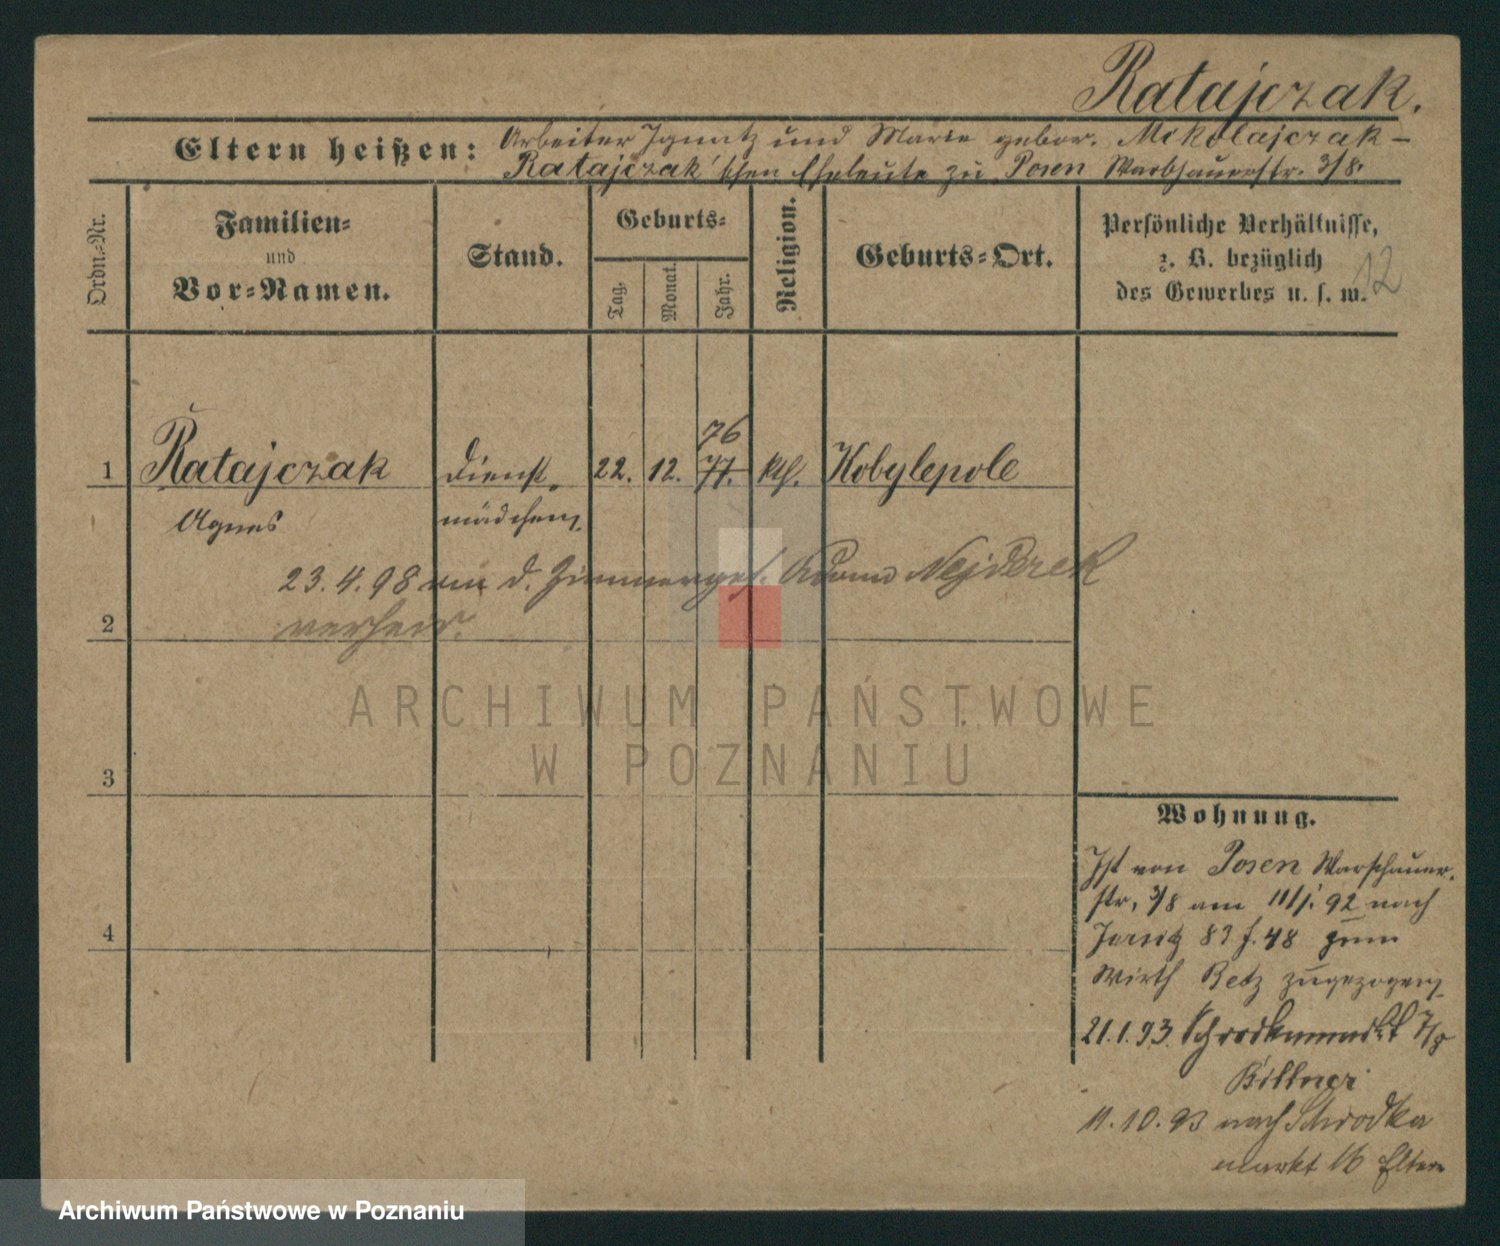 Ratajczak.
Eltern heißen: Arbeiter Ignatz und Marie gebor. Mikolajczak-
Ratajczak'schen Eheleute zu Posen Warschauerstr. 3/8.
Ordn.-Nr.
Familien-
und
Vor-Namen.
Stand.
Geburts-
Tag.
Monat.
Jahr.
Religion.
Geburts-Ort.
Persönliche Verhältnisse,
z. B. bezüglich
des Gewerbes u. s. w.
12
76
1 Ratajczak Dienst- 22. 12. 77. kth. Kobylepole
Agnes mädchen.
23.4.98 mit d. Zimmerges. Nejderek
2 verheir.
3
4
ARCHIWUM PAŃSTWOWE
W POZNANIU
Wohnung.
Ist von Posen Warschauer-
str. 3/8 am 11/1. 92 nach
Jersitz 83 f. 48 zum
Wirth Betz zugezogen
21.1.93. Schrodkamarkt 7/8
Billner
11.10.93 nach Schrodka
markt 16 Eltern
Archiwum Państwowe w Poznaniu